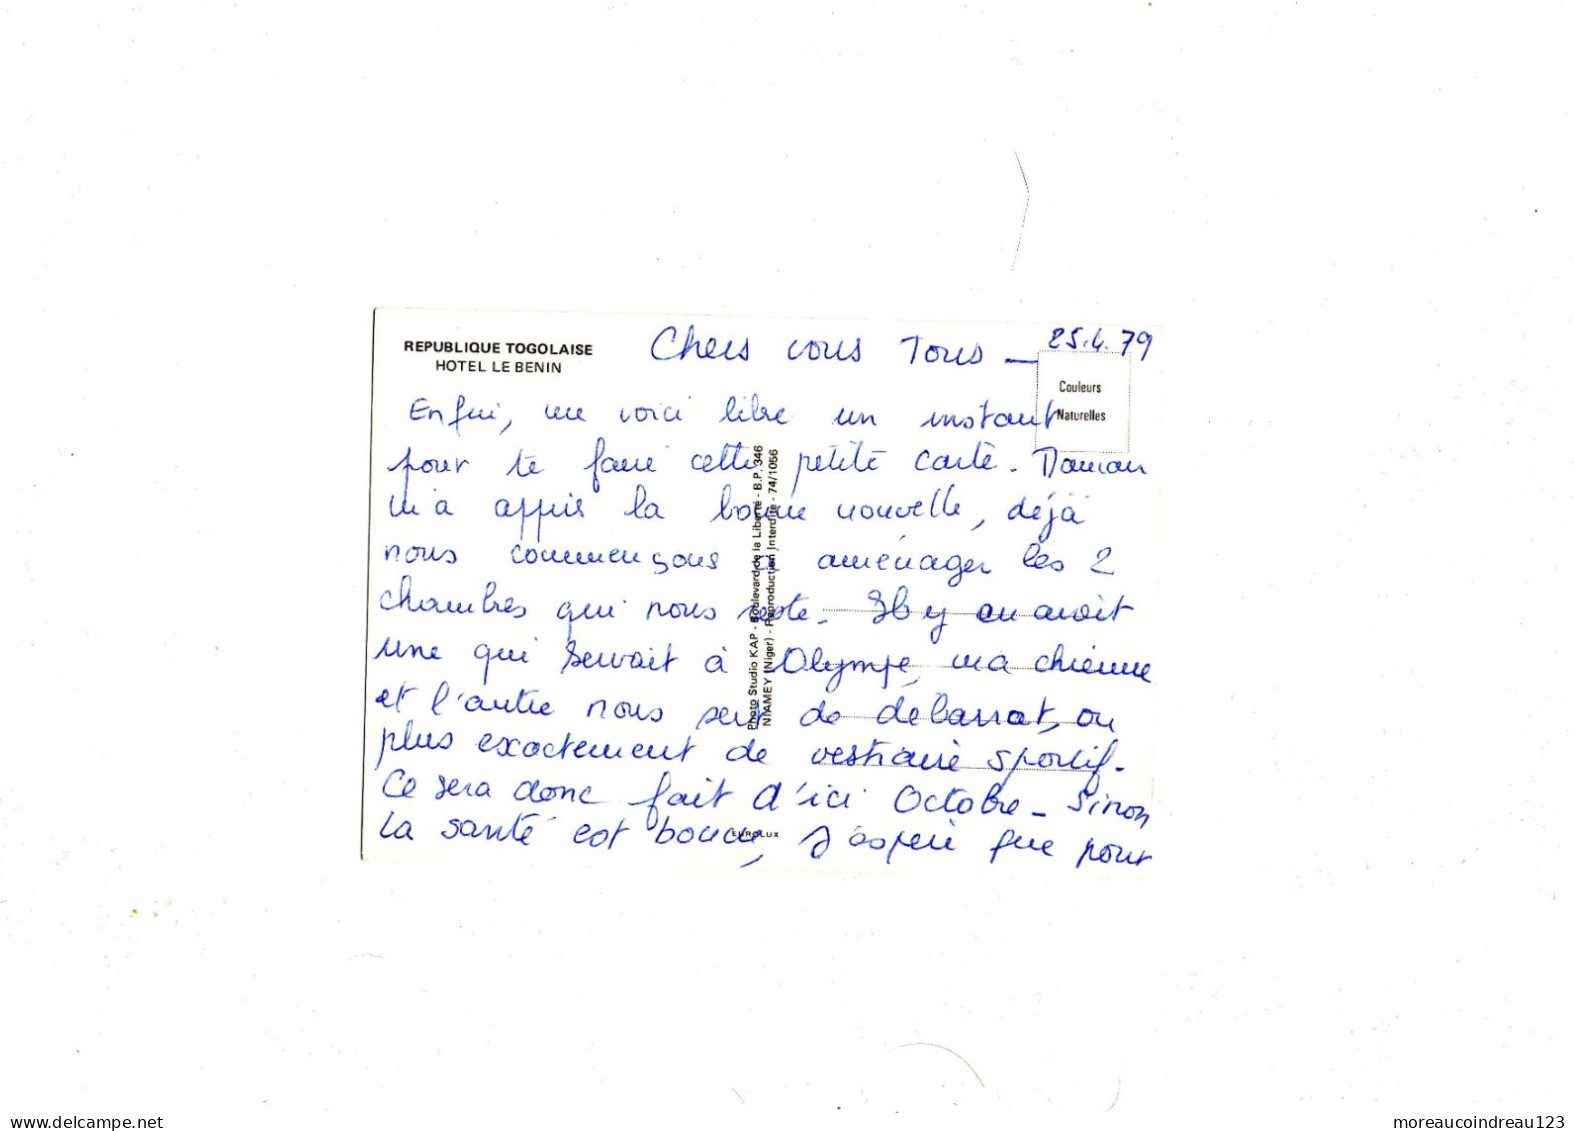 REPUBLIQUE TOGOLAISE
HOTEL LE BENIN
Chers vous Tous _
25.4.79
Couleurs
Naturelles
Enfin, me voici libre un instant
pour te faire cette petite carte. Maman
m'a appris la bonne nouvelle, déjà
nous commençons à aménager les 2
chambres qui nous reste. Il y en avait
une qui servait à Olympe, ma chienne
et l'autre nous sert de débarrat, ou
plus exactement de vestiaire sportif.
Ce sera donc fait d'ici Octobre _ Sinon
la santé est bonne, J'espère que pour
Photo Studio KAP - Boulevard de la Liberté - B.P. 346
NIAMEY (Niger) - Reproduction Interdite - 74/1056
EUROLUX
www.delcampe.net
moreaucoindreau123